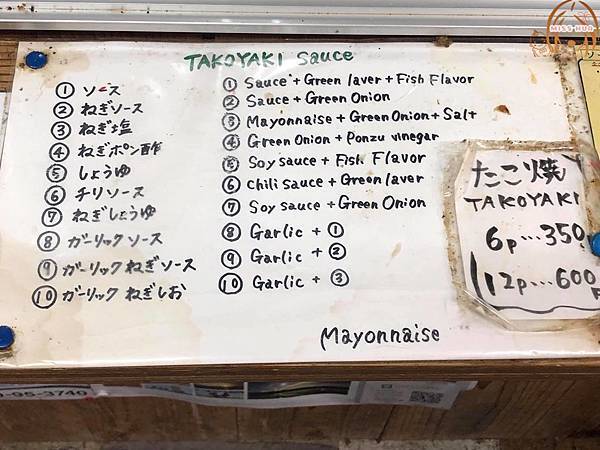 MISS HUA
TAKOYAKI Sauce
① ソース
② ねぎソース
③ ねぎ塩
④ ねぎポン酢
⑤ しょうゆ
⑥ チリソース
⑦ ねぎしょうゆ
⑧ ガーリックソース
⑨ ガーリックねぎソース
⑩ ガーリックねぎしお
① Sauce + Green laver + Fish Flavor
② Sauce + Green Onion
③ Mayonnaise + Green Onion + Salt
④ Green Onion + Ponzu vinegar
⑤ Soy sauce + Fish Flavor
⑥ Chili sauce + Green laver
⑦ Soy sauce + Green Onion
⑧ Garlic + ①
⑨ Garlic + ②
⑩ Garlic + ③
Mayonnaise
たこ焼
TAKOYAKI
6p…350
12p…600
-95-3740